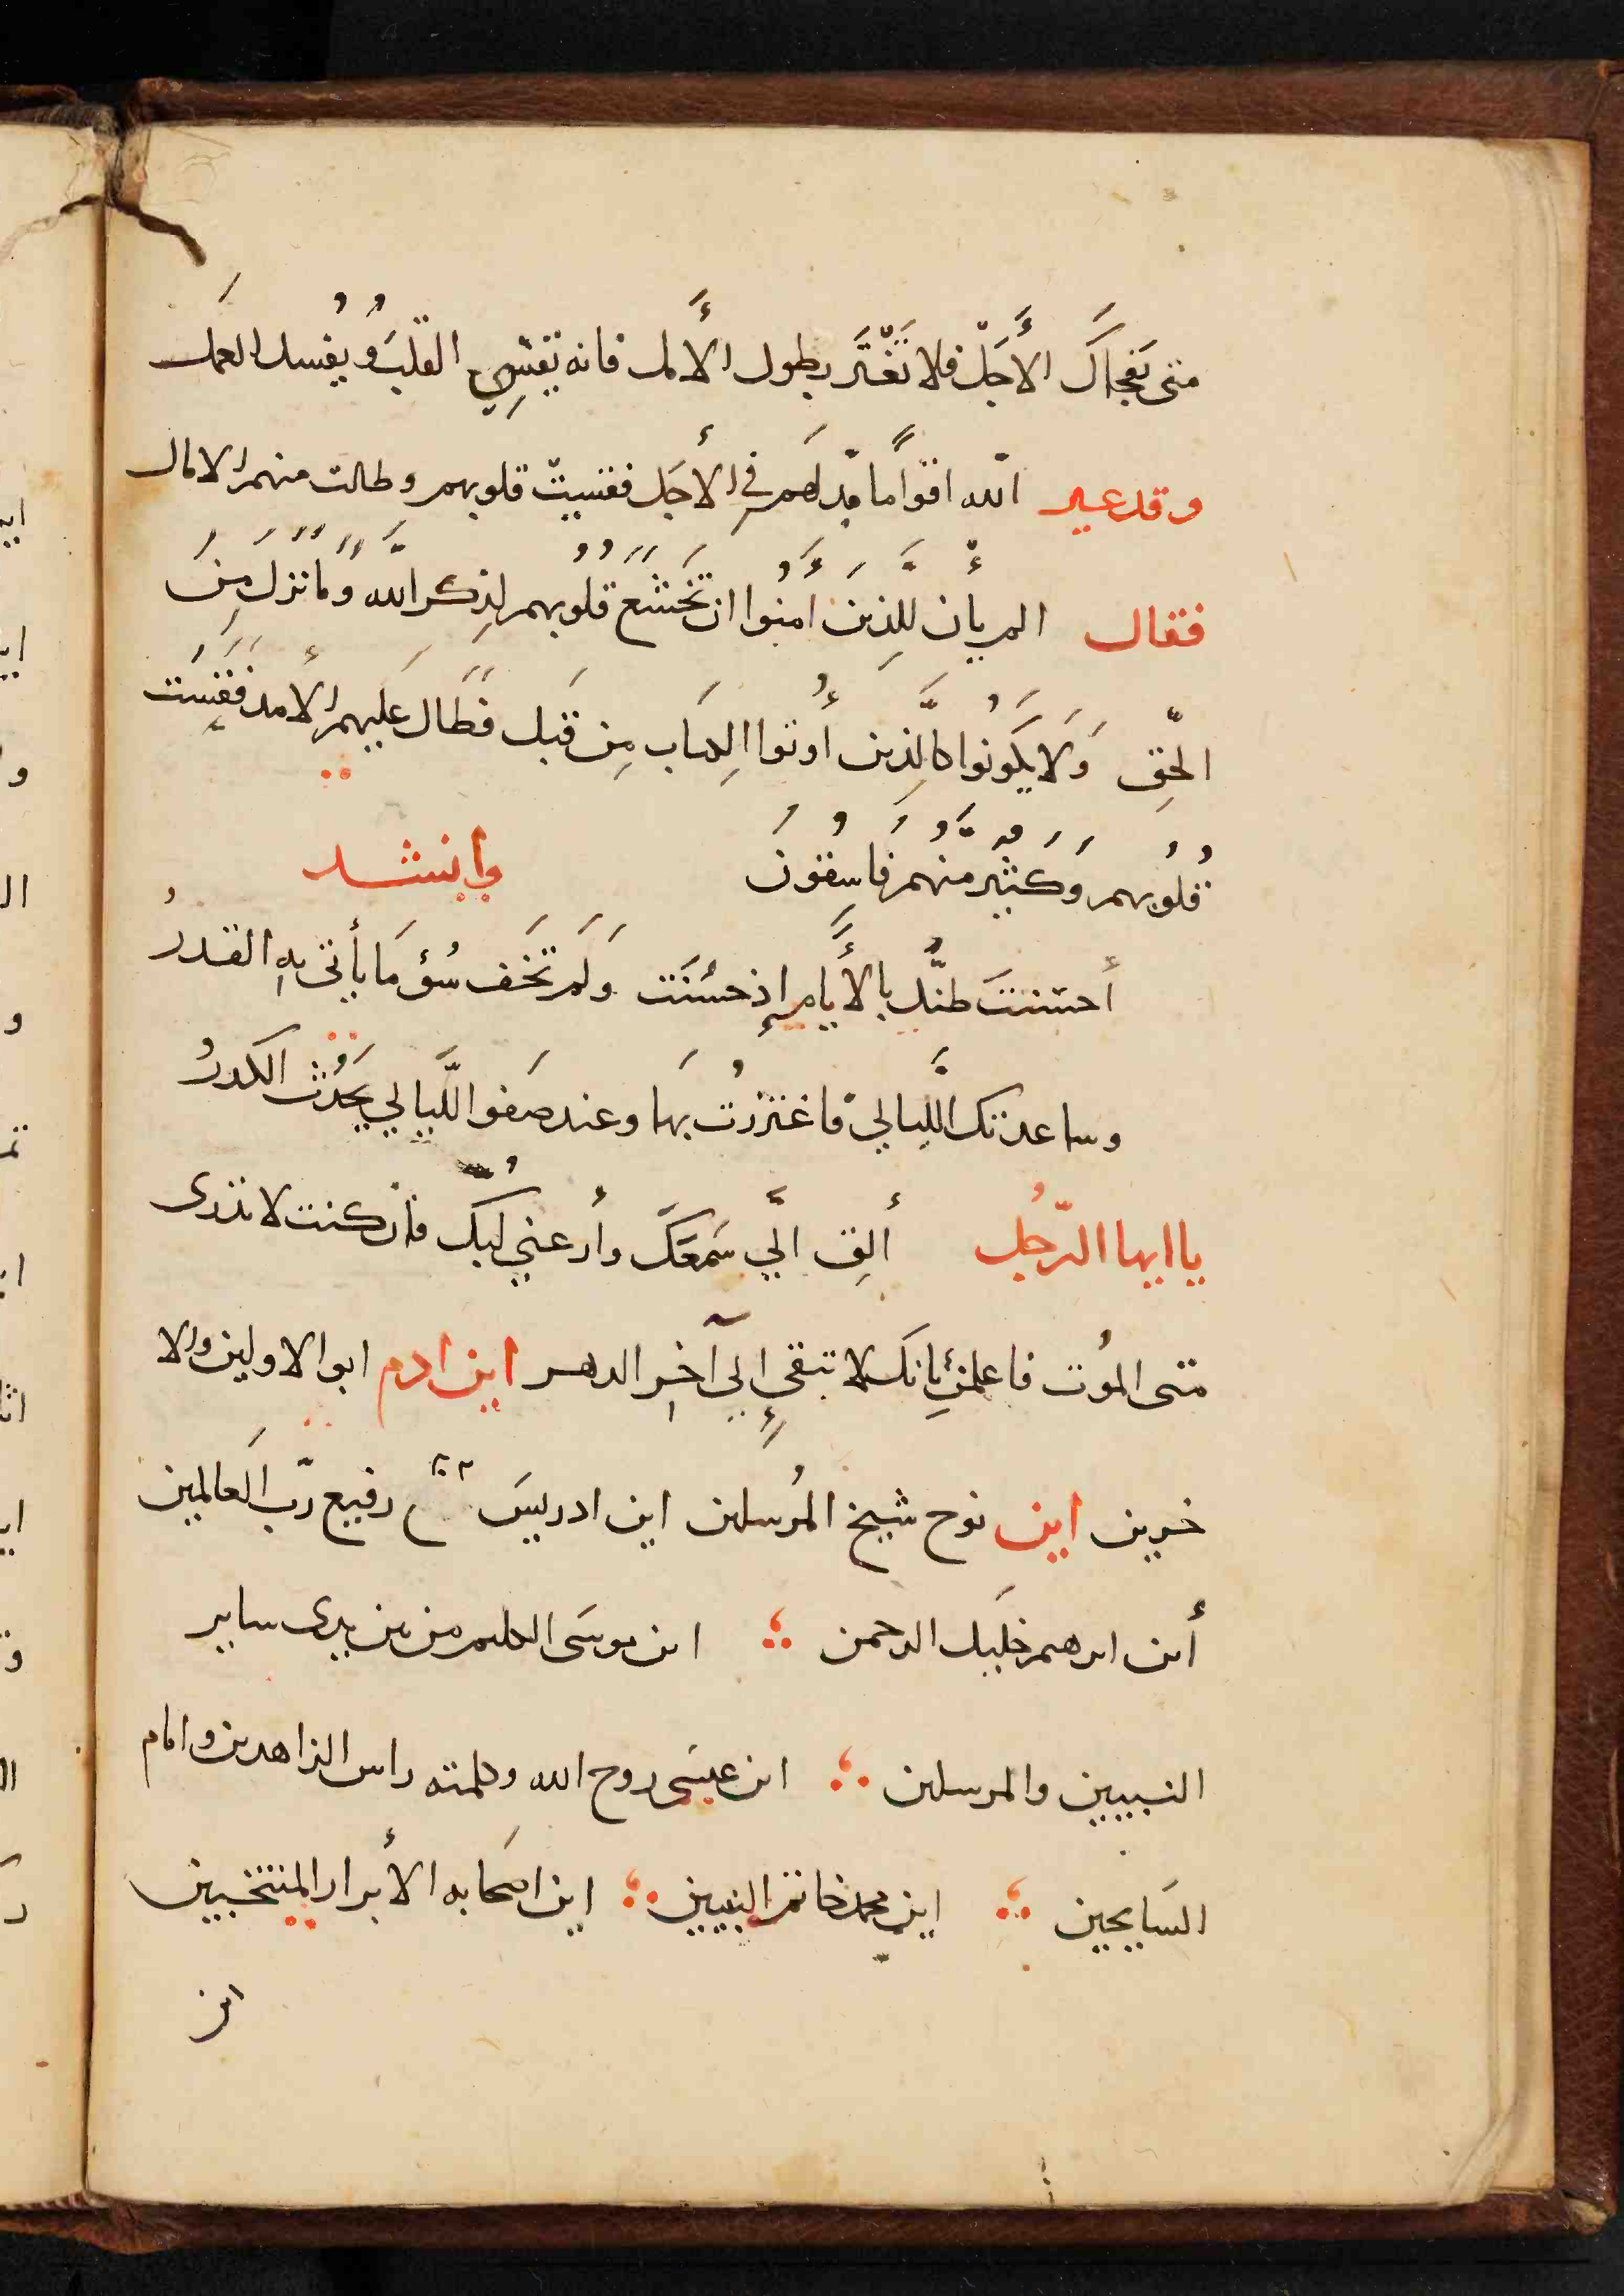 متى يَفجأكَ الأَجَلْ فلا تَغْتَر بطول الأَمل فانه يَقسّي القلبَ وُيفُسد العمَل
وقد عير الله اقوامًا مدّ لهم في الأجَل فقسيتْ قلوبهم وطالت منهم الامال
فقال الم يأن للذِينَ امَنُوا ان تَخشَعَ قلُوبُهم لذِكر اللَّه وَمَا نَزل مِنَ
الحَقِّ وَلَا يَكوُنُوا كالَّذِين أُوتوا الِكتاب مِن قَبلَ فَطَالَ عَليهمُ الأَمدُ فَقَسَت
قُلُوبُهم وَكَثيرٌ منهُّم فَاسِقُونَ وانشد
أحسَنتَ ظنَّك بالأَيَّامِ إذ حسُنَت وَلَم تَخَف سُؤَ مَا يأتى بهِ القدرُ
وساعدتك اللَّيالي فاغتررْت بهَا وعند صَفو اللَّيالي يَحدُث الكدرُ
يا ايها الرّجُل ألقِ الَّي سَمعَكَ وأرعني لُبّك فان كنت لا تدرى
متى الموُت فاعلمن بانكَ لا تبقي إلي آخِر الدهر اين ادم ابو الاولين والا
خرين اين نوح شيخ المُرسلين اين ادريسَ رفيع رّب العالمين
أين ابرهيم خليَل الرحمن ؛ اين موسَى الكليم من بين يدى ساير
النبيين والمرسلين ؛ اين عيسَى روح الله وكلمته راس الزاهدين وامام
السَايحين ؛ اين محمد خاتم النبيين ؛ اين اصحَابه الأبرار المنتخبين
اين